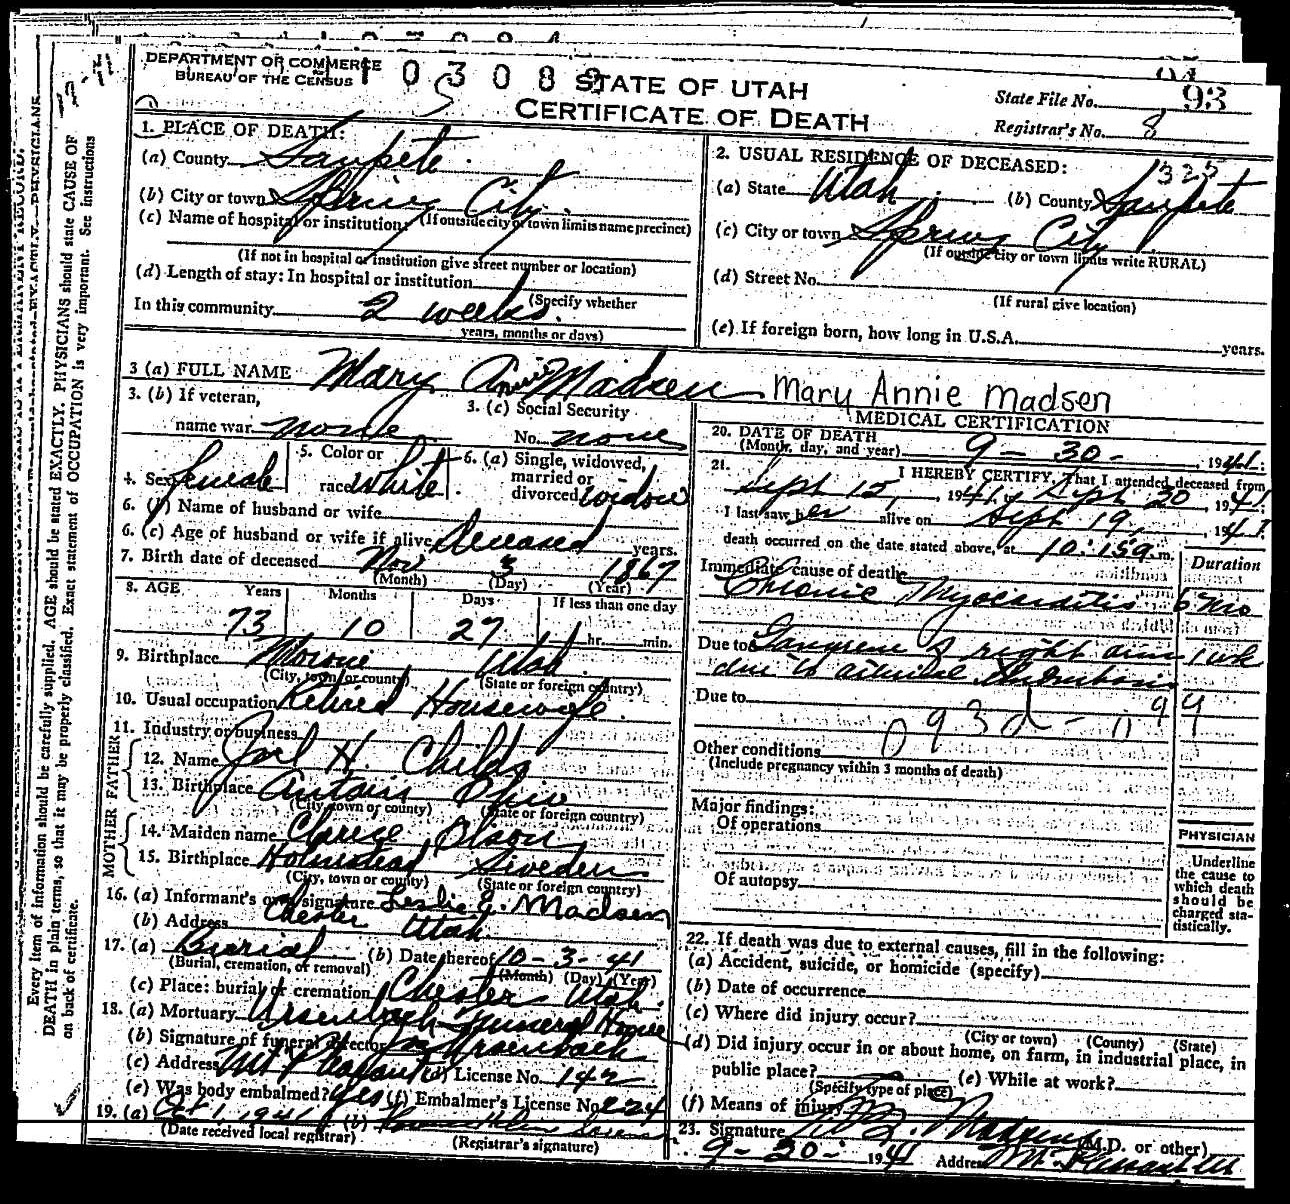 DEPARTMENT OF COMMERCE
BUREAU OF THE CENSUS
STATE OF UTAH
CERTIFICATE OF DEATH
State File No. 93
Registrar's No. 8
Every item of information should be carefully supplied. AGE should be stated EXACTLY. PHYSICIANS should state CAUSE OF
DEATH in plain terms, so that it may be properly classified. Exact statement of OCCUPATION is very important. See instructions
on back of certificate.
1. PLACE OF DEATH:
(a) County Sanpete
(b) City or town Spring City
(If outside city or town limits name precinct)
(c) Name of hospital or institution:
(If not in hospital or institution give street number or location)
(d) Length of stay: In hospital or institution
(Specify whether
In this community 2 weeks.
years, months or days)
2. USUAL RESIDENCE OF DECEASED: 1325
(a) State Utah (b) County Sanpete
(c) City or town Spring City
(If outside city or town limits write RURAL)
(d) Street No.
(If rural give location)
(e) If foreign born, how long in U.S.A. years.
3 (a) FULL NAME Mary Annie Madsen Mary Annie Madsen
3. (b) If veteran,
name war none
3. (c) Social Security
No. none
4. Sex female
5. Color or
race White
6. (a) Single, widowed,
married or
divorced widow
6. (b) Name of husband or wife
6. (c) Age of husband or wife if alive Deceased years.
7. Birth date of deceased Nov 3 1867
(Month) (Day) (Year)
8. AGE Years Months Days If less than one day
73 10 27 hr. min.
9. Birthplace Morone Utah
(City, town or county) (State or foreign country)
10. Usual occupation Retired Housewife
11. Industry or business
FATHER
12. Name Joel H. Childs
13. Birthplace Ohio
(City, town or county) (State or foreign country)
MOTHER
14. Maiden name Olson
15. Birthplace Holmstead Sweden
(City, town or county) (State or foreign country)
16. (a) Informant's own signature Leslie E. Madsen
(b) Address Chester Utah
17. (a) Burial (b) Date thereof 10-3-41
(Burial, cremation, or removal) (Month) (Day) (Year)
(c) Place: burial or cremation Chester Utah.
18. (a) Mortuary Ursenbach Funeral Home
(b) Signature of funeral director Ursenbach
(c) Address Mt Pleasant (d) License No. 142
(e) Was body embalmed? Yes (f) Embalmer's License No. 224
19. (a) Oct 1 1941 (b)
(Date received local registrar) (Registrar's signature)
MEDICAL CERTIFICATION
20. DATE OF DEATH
(Month, day, and year) 9-30-, 1941.
21. I HEREBY CERTIFY, That I attended deceased from
Sept 15, 1941, to Sept 30, 1941.
I last saw her alive on Sept 19, 1941
death occurred on the date stated above, at 10:15 m.
Duration
Immediate cause of death
Chronic Myocarditis 6 mo
Due to Gangrene of right arm 1 wk
due to arterial thrombosis
Due to
093d - 099
Other conditions
(Include pregnancy within 3 months of death)
Major findings:
Of operations
Of autopsy
PHYSICIAN
Underline
the cause to
which death
should be
charged sta-
tistically.
22. If death was due to external causes, fill in the following:
(a) Accident, suicide, or homicide (specify)
(b) Date of occurrence
(c) Where did injury occur?
(City or town) (County) (State)
(d) Did injury occur in or about home, on farm, in industrial place, in
public place? (e) While at work?
(Specify type of place)
(f) Means of injury
23. Signature Madsen (M.D. or other)
9-30-1941 Address Mt. Pleasant Ut